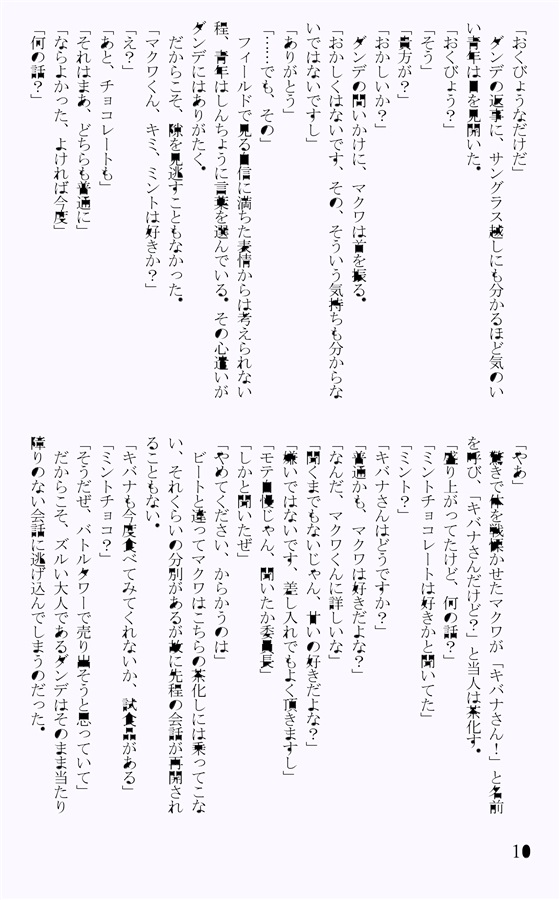 「おくびょうなだけだ」
ダンデの返事に、サングラス越しにも分かるほど気のい
い青年は目を見開いた。
「おくびょう？」
「そう」
「貴方が？」
「おかしいか？」
ダンデの問いかけに、マクワは首を振る。
「おかしくはないです、その、そういう気持ちも分からな
いではないですし」
「ありがとう」
「……でも、その」
フィールドで見る自信に満ちた表情からは考えられない
程、青年はしんちょうに言葉を選んでいる。その心遣いが
ダンデにはありがたく。
だからこそ、隙を見逃すこともなかった。
「マクワくん、キミ、ミントは好きか？」
「え？」
「あと、チョコレートも」
「それはまあ、どちらも普通に」
「ならよかった、よければ今度」
「何の話？」
「やあ」
驚きで体を戦慄かせたマクワが「キバナさん！」と名前
を呼び、「キバナさんだけど？」と当人は茶化す。
「盛り上がってたけど、何の話？」
「ミントチョコレートは好きかと聞いてた」
「ミント？」
「キバナさんはどうですか？」
「普通かも、マクワは好きだよな？」
「なんだ、マクワくんに詳しいな」
「聞くまでもないじゃん、甘いの好きだよな？」
「嫌いではないです、差し入れでもよく頂きますし」
「モテ自慢じゃん、聞いたか委員長」
「しかと聞いたぜ」
「やめてください、からかうのは」
ビートと違ってマクワはこちらの茶化しには乗ってこな
い、それくらいの分別があるが故に先程の会話が再開され
ることもない。
「キバナも今度食べてみてくれないか、試食品がある」
「ミントチョコ？」
「そうだぜ、バトルタワーで売り出そうと思っていて」
だからこそ、ズルい大人であるダンデはそのまま当たり
障りのない会話に逃げ込んでしまうのだった。
10